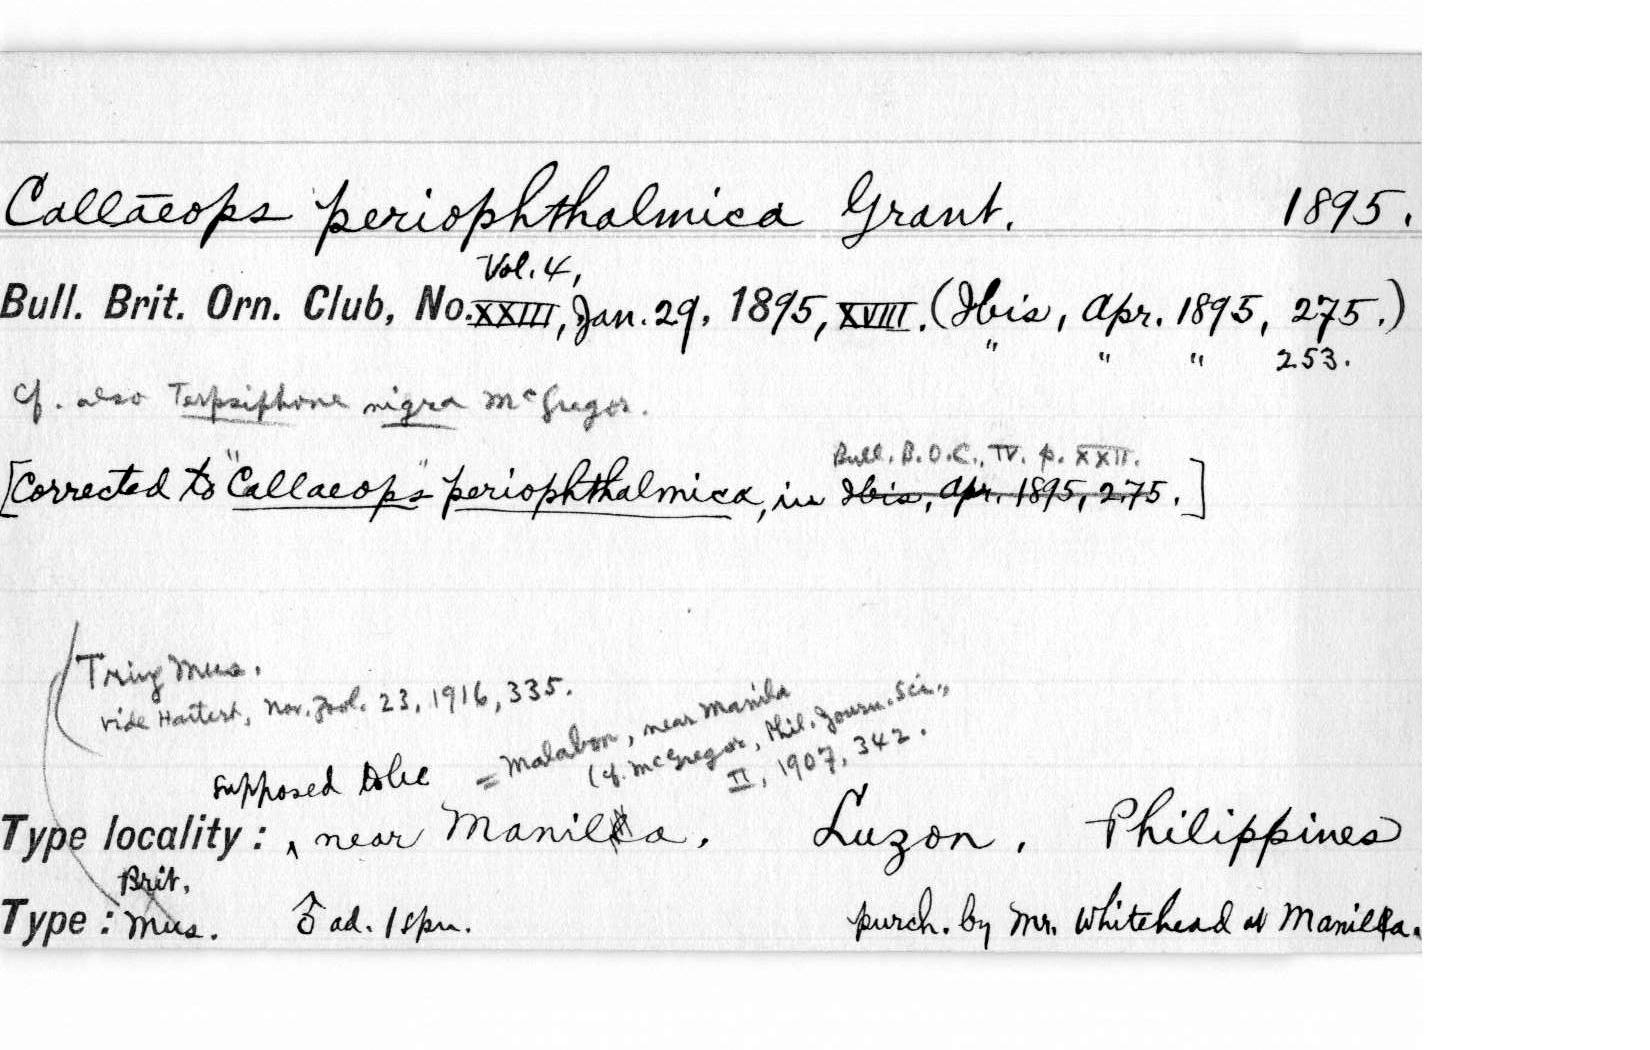 Callāeops periophthalmica Grant. 1895.
Vol. 4,
Bull. Brit. Orn. Club, No. XXIII, Jan. 29, 1895, XVIII. (Ibis, Apr. 1895, 275.)
" " " 253.
Cf. also Terpsiphone nigra McGregor.
Bull. B.O.C., IV. p. XXII.
[Corrected to "Callaeops" periophthalmica, in Ibis, Apr. 1895, 275.]
Tring Mus.
vide Hartert, Nov. Zool. 23, 1916, 335.
= Malabon, near Manila
(cf. McGregor, Phil. Journ. Sci.,
II, 1907, 342.
supposed to be
Type locality: ‸ near Manilla. Luzon. Philippines
Brit.
Type: Mus. ♂ ad. 1 spn. purch. by Mr. Whitehead at Manilla.